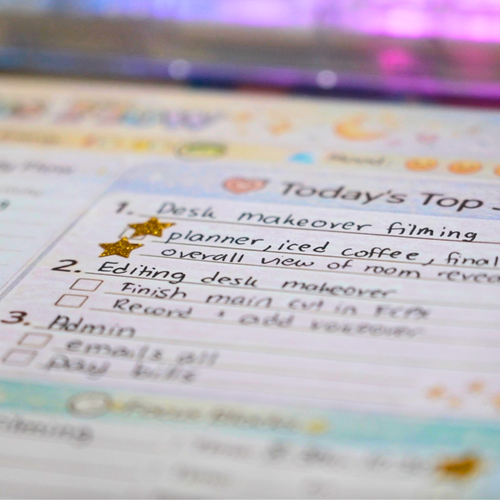 Flow
Mood:
Today's Top
1. Desk makeover filming
planner, iced coffee, final
overall view of room revea
2. Editing desk makeover
Finish main cut in FCPX
Record + add voiceover
3. Admin
emails all
pay bills
Focus Blocks